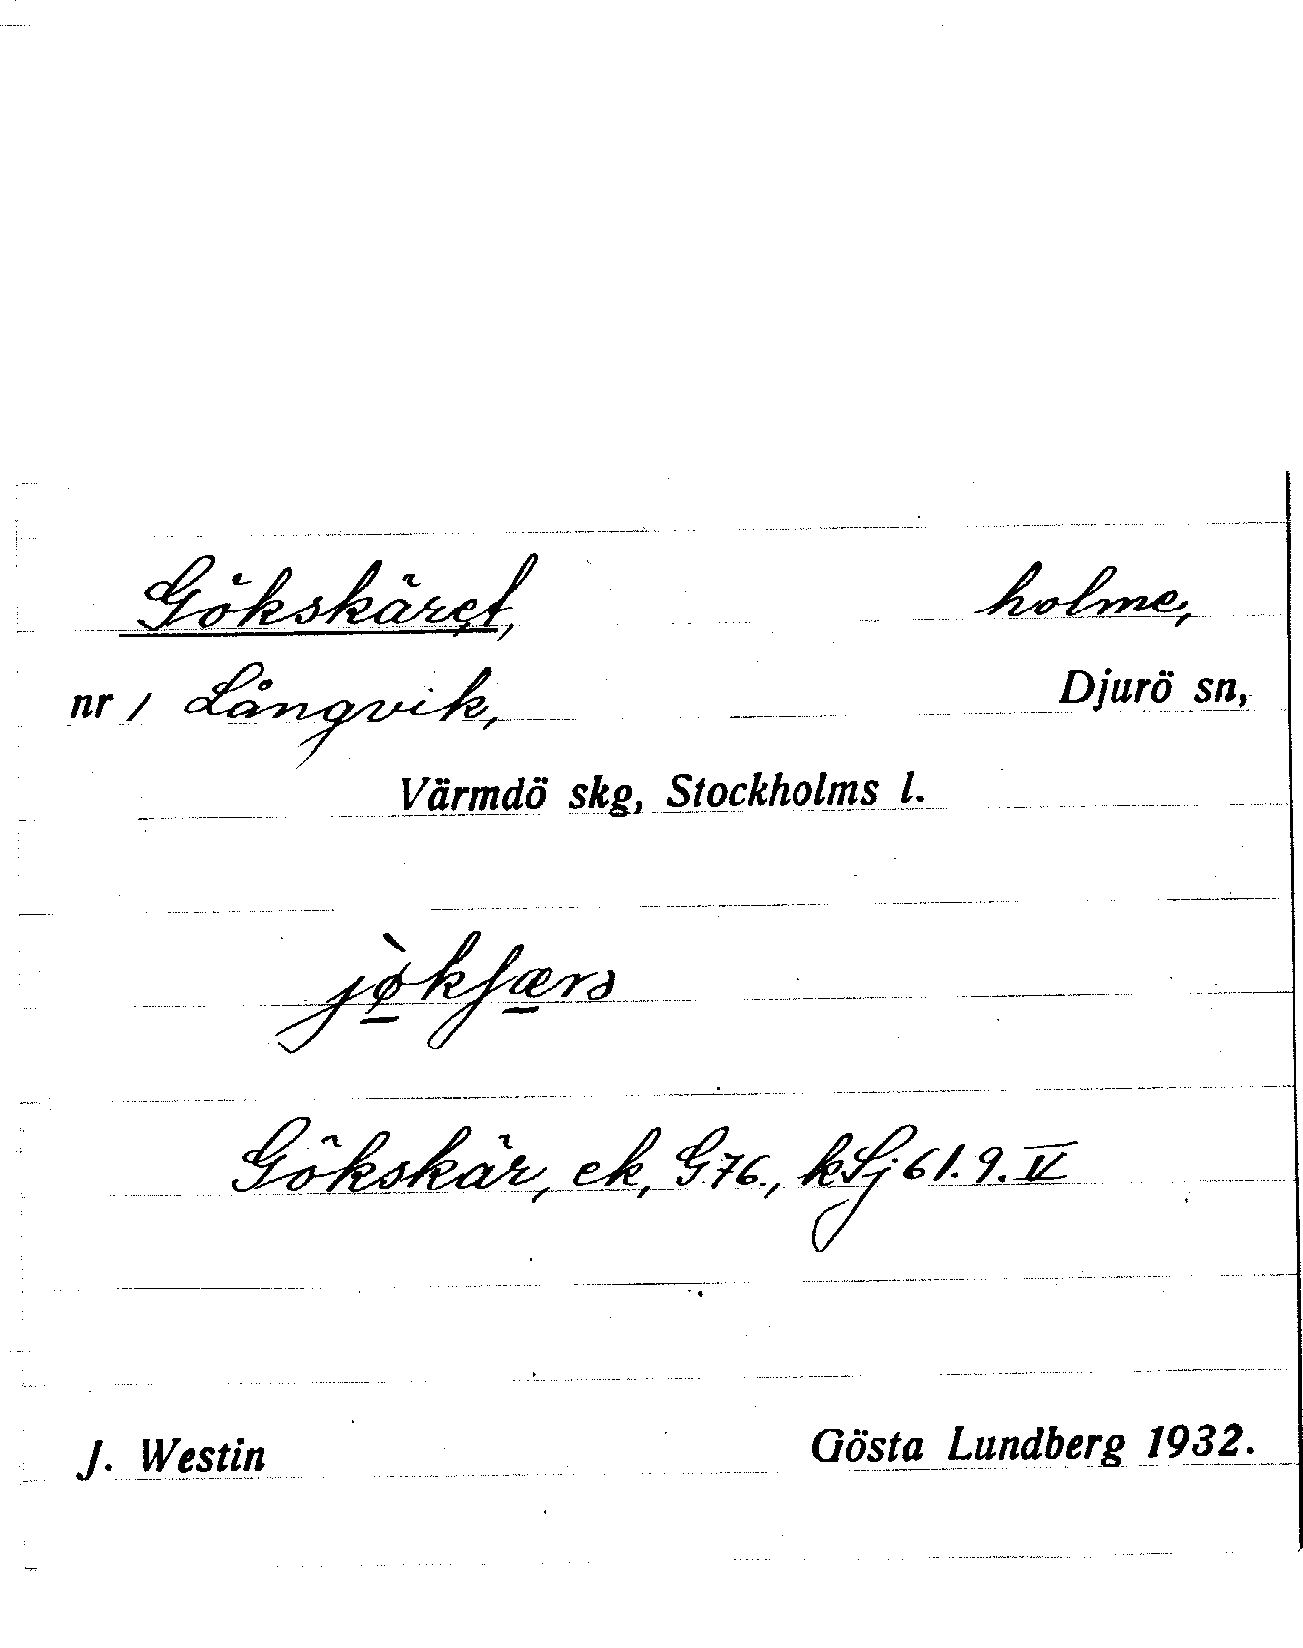 Gökskäret, holme,
nr 1 Långvik, Djurö sn,
Värmdö skg, Stockholms l.
jø̀kʃærə
Gökskär, ek, G 76., k Sj 61.9. IV
J. Westin Gösta Lundberg 1932.